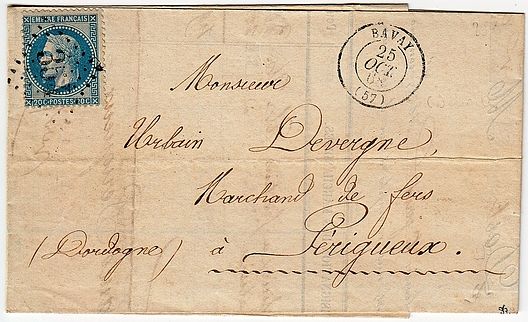 EMPIRE FRANÇAIS
20C POSTES 20C
BAVAY
25
OCT
(57)
Monsieur
Urbain Devergne,
Marchand de fers
(Dordogne) à Périgueux.